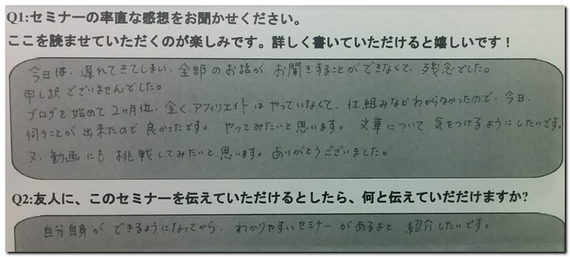 Q1:セミナーの率直な感想をお聞かせください。
ここを読ませていただくのが楽しみです。詳しく書いていただけると嬉しいです！
今日は、遅れてきてしまい、全部のお話がお聞きすることができなくて、残念でした。
申し訳ございませんでした。
ブログを始めて2ヶ月位、全くアフィリエイトはやっていなくて、仕組みなどわからなかったので、今日、
伺うことが出来たので良かったです。やってみたいと思います。文章について気をつけるようにしたいです。
又、動画にも挑戦してみたいと思います。ありがとうございました。
Q2:友人に、このセミナーを伝えていただけるとしたら、何と伝えていだだけますか?
自分自身ができるようになってから、わかりやすいセミナーがあるよと紹介したいです。